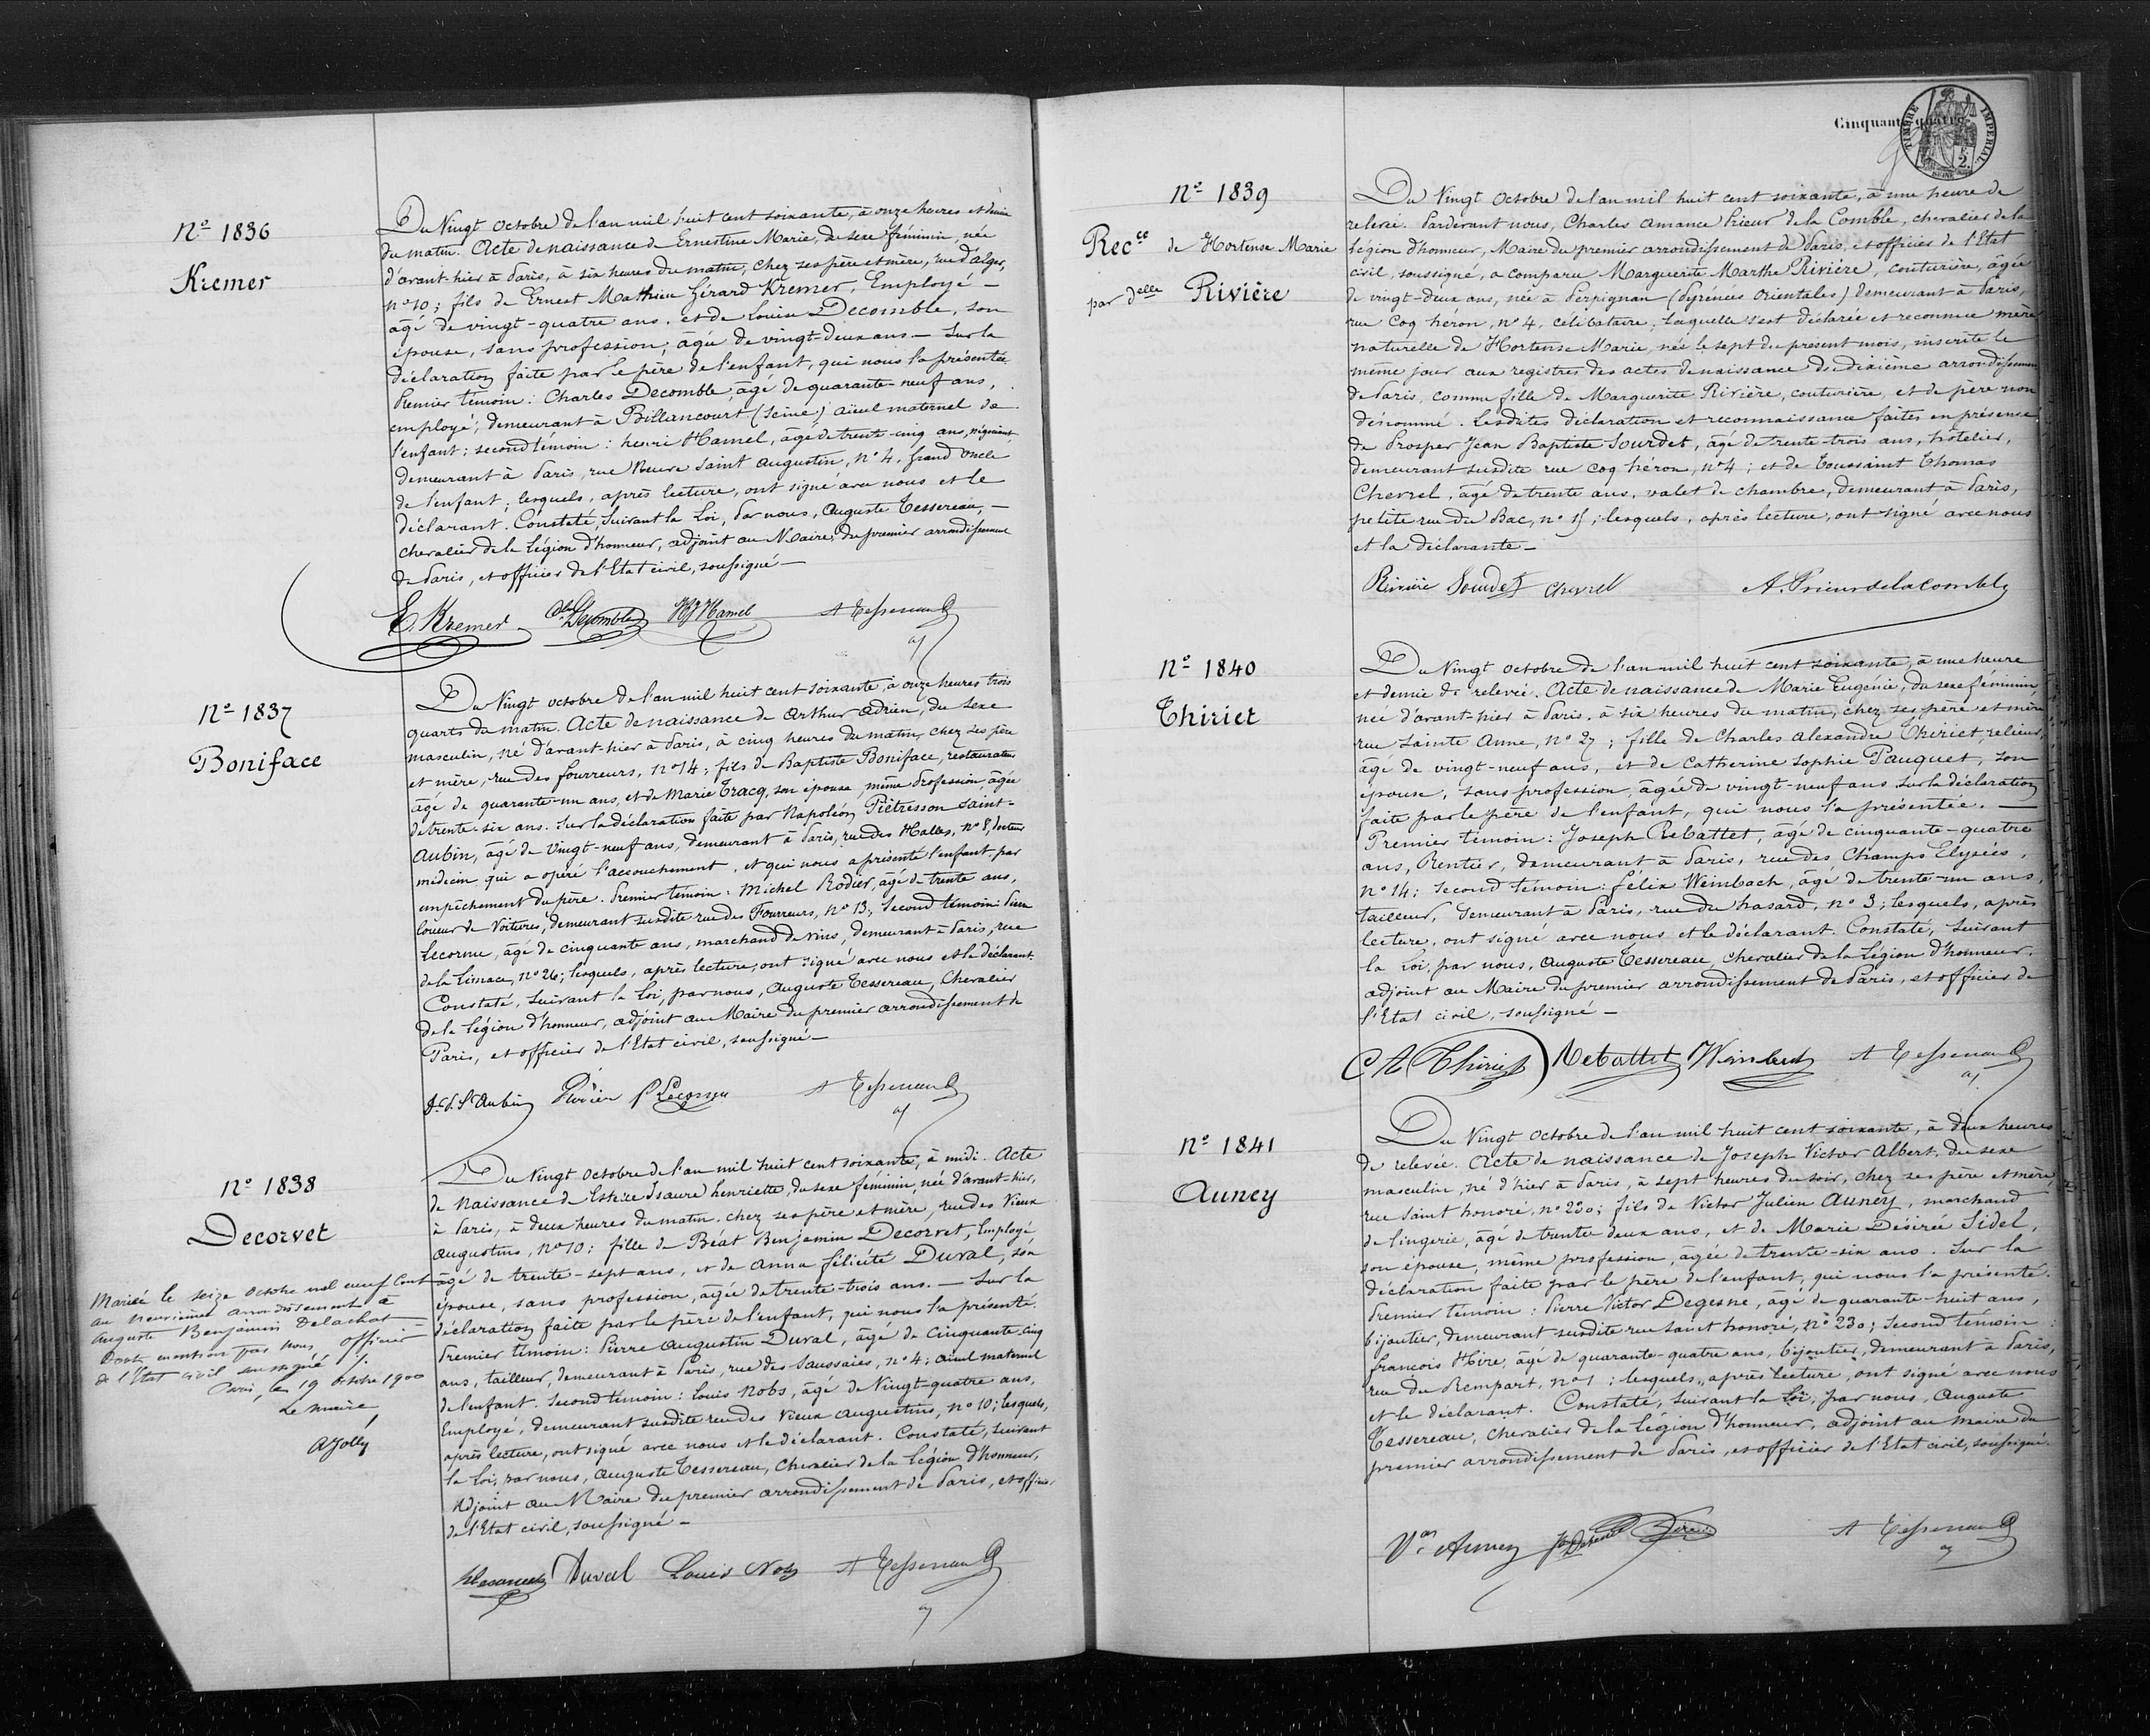 Nº 1836
Kremer
Du Vingt octobre de l'an mil huit cent soixante, à onze heures et demie
du matin. Acte de naissance de Ernestine Marie, du sexe féminin, née
d'avant-hier à Paris, à six heures du matin, chez ses père et mère, rue d'alger,
nº 10; fils de Ernest Mathieu Gérard Kremer, Employé —
âgé de vingt-quatre ans, et de Louise Decomble, son
épouse, sans profession, âgée de vingt-deux ans — Sur la
déclaration faite par le père de l'enfant, qui nous l'a présentée.
Premier témoin: Charles Decomble, âgé de quarante-neuf ans,
employé, demeurant à Billancourt (Seine) aïeul maternel de
l'enfant; second témoin: henri Hamel, âgé de trente-cinq ans, négociant,
demeurant à Paris, rue Neuve Saint augustin, nº 4, grand oncle
de l'enfant; lesquels, après lecture, ont signé avec nous et le
déclarant. Constaté, Suivant la Loi, Par nous, Auguste Tessereau, —
chevalier de la Légion d'honneur, adjoint au Maire du premier arrondissement
de Paris, et officier de l'Etat civil, soussigné —
E. Kremer Ch Decomble Hy Hamel A Tessereau
aj
Nº 1837
Boniface
Du Vingt octobre de l'an mil huit cent soixante, à onze heures trois
quarts du matin. Acte de naissance de Arthur Adrien, du sexe
masculin, né d'avant-hier à Paris, à cinq heures du matin, chez ses père
et mère, rue des fourreurs, nº 14; fils de Baptiste Boniface, restaurateur
âgé de quarante-un ans, et de Marie Tracq, son épouse, même profession, âgée
de trente-six ans. Sur la déclaration faite par Napoléon Piétresson Saint-
Aubin, âgé de vingt-neuf ans, demeurant à Paris, rue des Halles, nº 8, docteur
médecin qui a opéré l'accouchement, et qui nous a présenté l'enfant par
empêchement du père. Premier témoin: Michel Rodier, âgé de trente ans,
loueur de Voitures, demeurant susdite rue des Fourreurs, nº 13; Second témoin: Pierre
Lecornu, âgé de cinquante ans, marchand de vins, demeurant à Paris, rue
de la Limace, nº 26; lesquels, après lecture, ont signé avec nous et le déclarant.
Constaté, suivant la Loi, par nous, Auguste Tessereau, Chevalier
de la Légion d'honneur, adjoint au Maire du premier arrondissement de
Paris, et officier de l'Etat civil, soussigné —
St Aubin Rodier P Lecornu A Tessereau
aj
Nº 1838
Decorvet
Du Vingt octobre de l'an mil huit cent soixante, à midi. Acte
de naissance de Isaure henriette, du sexe féminin, née d'avant-hier,
à Paris, à deux heures du matin, chez ses père et mère, rue des Vieux
Augustins, nº 10; fille de Béat Benjamin Decorvet, Employé,
âgé de trente-sept ans, et de Anna félicité Duval, son
épouse, sans profession, âgée de trente-trois ans. — Sur la
déclaration faite par le père de l'enfant, qui nous l'a présenté.
Premier témoin: Pierre Augustin Duval, âgé de cinquante-cinq
ans, tailleur, demeurant à Paris, rue des Saussaies, nº 4; aïeul maternel
de l'enfant. Second témoin: Louis Nobs, âgé de Vingt-quatre ans,
Employé, demeurant susdite rue des Vieux Augustins, nº 10; lesquels,
après lecture, ont signé avec nous et le déclarant. Constaté, suivant
la Loi, par nous, Auguste Tessereau, Chevalier de la Légion d'honneur,
Adjoint au Maire du premier arrondissement de Paris, et officier
de l'Etat civil, soussigné —
Duval Louis Nobs A Tessereau
aj
Mariée le seize octobre mil neuf Cent
au neuvième arrondissement à
Auguste Benjamin Delachat
Dont mention par nous officier
de l'Etat civil soussigné
Paris, le 19 octobre 1900
Le maire
AJolly
Cinquante quatre
TIMBRE IMPERIAL
2.
SEINE
Nº 1839
Recce de Hortense Marie
par delle Rivière
Du Vingt octobre de l'an mil huit cent soixante, à une heure de
relevée. Pardevant nous, Charles Amance Prieur de la Comble, chevalier de la
Légion d'honneur, Maire du premier arrondissement de Paris, et officier de l'Etat
civil, soussigné, a comparu Marguerite Marthe Rivière, couturière, âgée
de vingt-deux ans, née à Perpignan (Pyrénées orientales) demeurant à Paris,
rue Coq héron, nº 4, célibataire, laquelle s'est déclarée et reconnue mère
naturelle de Hortense Marie, née le sept du présent mois, inscrite le
même jour aux registres des actes de naissance du dixième arrondissement
de Paris, comme fille de Marguerite Rivière, couturière, et de père non
dénommé. Lesdites déclaration et reconnaissance faites en présence
de Prosper Jean Baptiste Sourdet, âgé de trente-trois ans, hôtelier,
demeurant susdite rue coq héron, nº 4; et de Toussaint Thomas
Chevrel, âgé de trente ans, valet de chambre, demeurant à Paris,
petite rue du Bac, nº 15; lesquels, après lecture, ont signé avec nous
et la déclarante —
Rivière Sourdet Chevrel A. Prieur de la Comble
Nº 1840
Thiriet
Du Vingt octobre de l'an mil huit cent soixante, à une heure
et demie de relevée. Acte de naissance de Marie Eugénie, du sexe féminin,
née d'avant-hier à Paris, à six heures du matin, chez ses père et mère
rue Sainte Anne, nº 27; fille de Charles Alexandre Thiriet, relieur,
âgé de vingt-neuf ans, et de Catherine Sophie Pauquet, son
épouse, sans profession, âgée de vingt-neuf ans. Sur la déclaration
faite par le père de l'enfant, qui nous l'a présentée. —
Premier témoin: Joseph Rebattet, âgé de cinquante-quatre
ans, Rentier, demeurant à Paris, rue des Champs Elysées,
nº 14; second témoin: félix Weinbach, âgé de trente-un ans,
tailleur, demeurant à Paris, rue du hasard, nº 3; lesquels, après
lecture, ont signé avec nous et le déclarant. Constaté, suivant
la Loi, par nous, Auguste Tessereau, chevalier de la Légion d'honneur,
adjoint au Maire du premier arrondissement de Paris, et officier de
l'Etat civil, soussigné —
C A Thiriet Rebattet Weinbach A Tessereau
aj.
Nº 1841
Auney
Du Vingt octobre de l'an mil huit cent soixante, à deux heures
de relevée. Acte de naissance de Joseph Victor Albert, du sexe
masculin, né d'hier à Paris, à sept heures du soir, chez ses père et mère,
rue Saint honoré, nº 230; fils de Victor Julien Auney, marchand
de lingerie, âgé de trente deux ans, et de Marie Désirée Sidel,
son épouse, même profession, âgée de trente-six ans. Sur la
déclaration faite par le père de l'enfant, qui nous l'a présenté.
Premier témoin: Pierre Victor Degesne, âgé de quarante-huit ans,
bijoutier, demeurant susdite rue Saint honoré, nº 230; second témoin:
françois Hire, âgé de quarante-quatre ans, bijoutier, demeurant à Paris,
rue du Rempart, nº 1; lesquels, après lecture, ont signé avec nous
et le déclarant. Constaté, suivant la Loi, par nous, Auguste
Tessereau, chevalier de la Légion d'honneur, adjoint au maire du
premier arrondissement de Paris, et officier de l'Etat civil, soussigné.
Vor Auney A Tessereau
aj